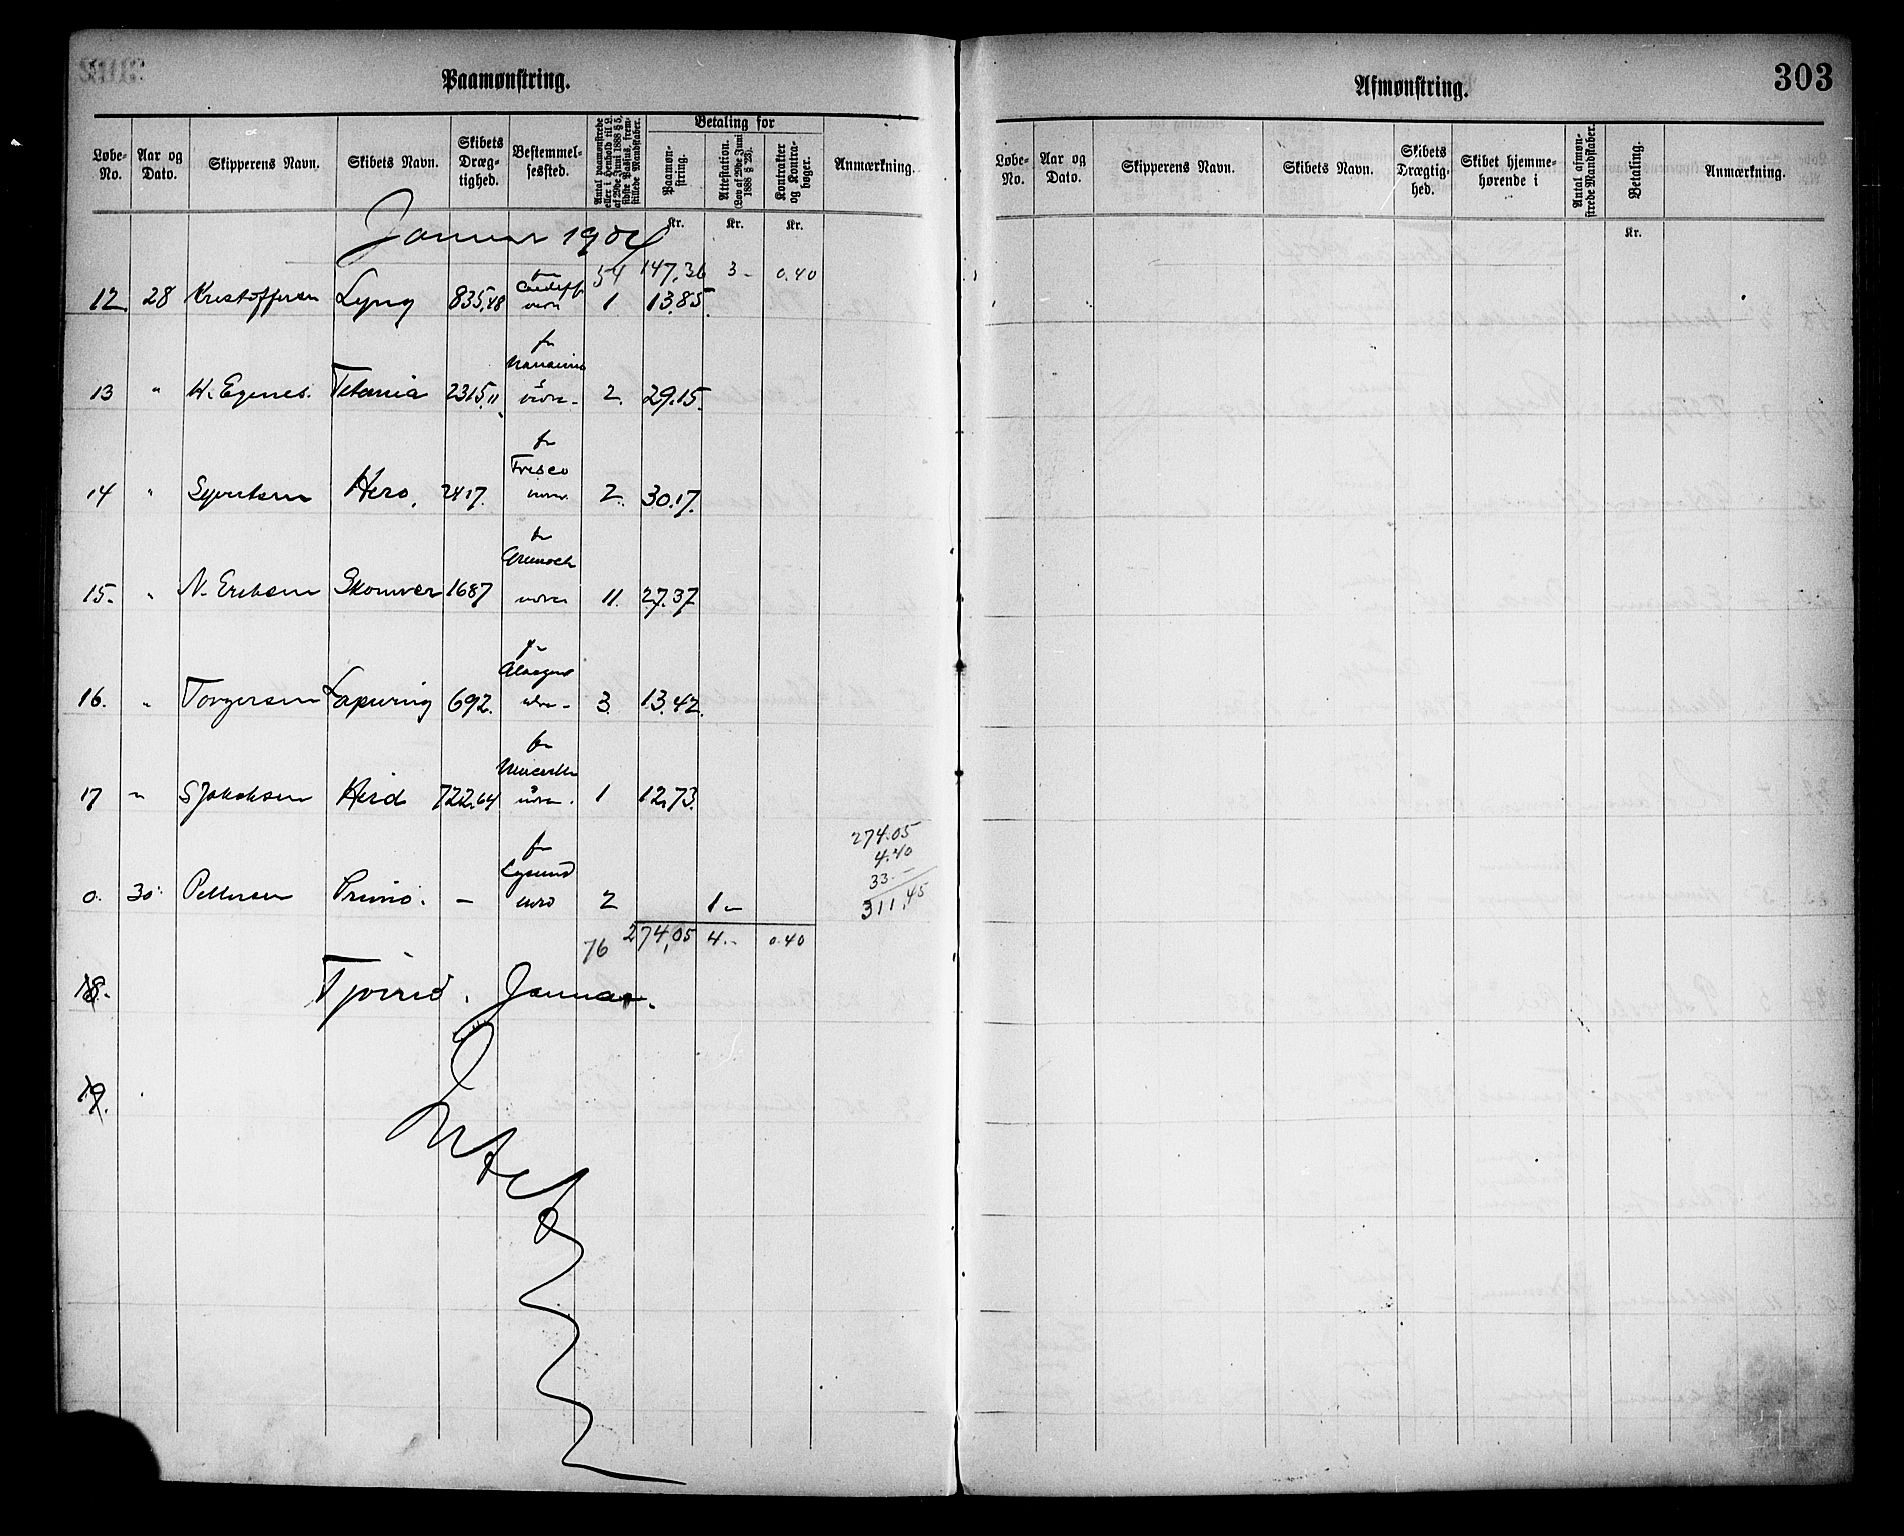 Paamønstring.
Løbe-No. Aar og Dato. Skipperens Navn. Skibets Navn. Skibets Dræg-tighed. Bestemmel-sessted. Antal paamønstrede eller i Henhold til L. af 29de Juni 1888 § 5, sidste Passus, frem-stillede Mandskaber. Betaling for Paamøn-string. Attestation. (Lov af 29de Juni 1888 § 23). Kontrakter og Kontra-bøger. Anmærkning.
Kr. Kr. Kr.
Januar 1904
54 147,36 3- 0.40
12 28 Kristoffersen Lyng 835,48 fra Cardiff 1 13.85.
13 " Egenes. Titania 2315,11 fra 2. 29.15.
14 " Syvertsen Hero. 2417. fra Frisco 2. 30.17.
15. " N. Eriksen Skomvær 1687 fra 11. 27.37
16. " Torgersen Lapwing 692. fra 3. 13.42.
17 " S Jakobsen Hird 722.64 fra 1 12.73.
274.05
4.40
33.-
311.45
0. 30. Pettersen Primo. - fra 2 1-
76 274,05 4.- 0.40
18. Januar.
19.
Afmønstring.
303
Løbe-No. Aar og Dato. Skipperens Navn. Skibets Navn. Skibets Drægtig-hed. Skibet hjemme-hørende i Antal afmøn-strede Mandskaber. Betaling. Anmærkning.
Kr.